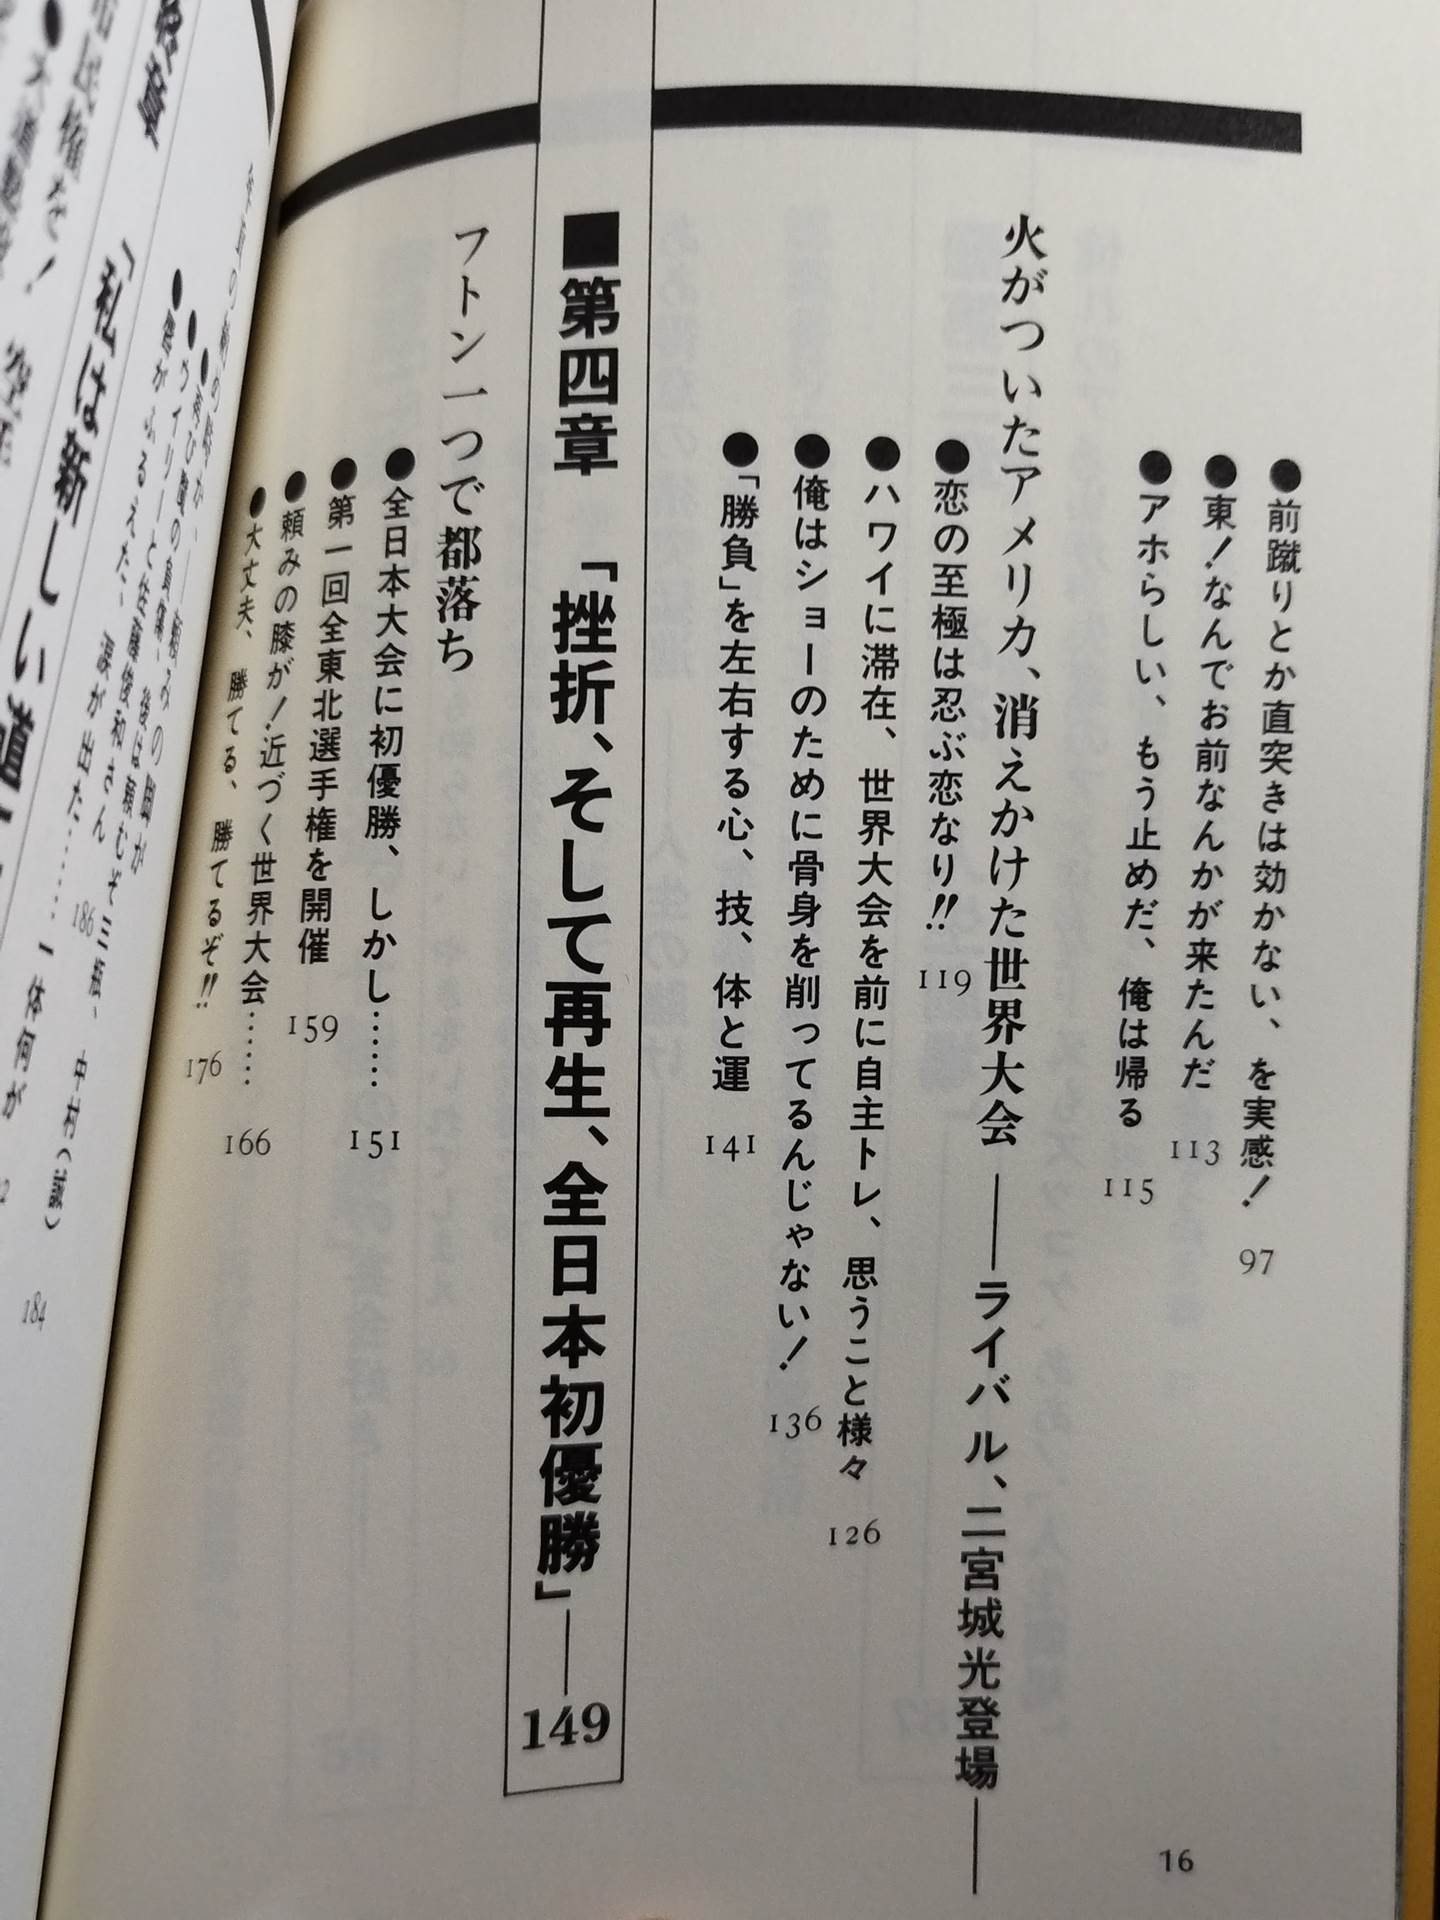 ●前蹴りとか直突きは効かない、を実感! 97
●東!なんでお前なんかが来たんだ 113
●アホらしい、もう止めだ、俺は帰る 115
火がついたアメリカ、消えかけた世界大会――ライバル、二宮城光登場――
●恋の至極は忍ぶ恋なり!! 119
●ハワイに滞在、世界大会を前に自主トレ、思うこと様々 126
●俺はショーのために骨身を削ってるんじゃない! 136
●「勝負」を左右する心、技、体と運 141
■第四章 「挫折、そして再生、全日本初優勝」――149
フトン一つで都落ち
●全日本大会に初優勝、しかし…… 151
●第一回全東北選手権を開催 159
●頼みの膝が!近づく世界大会…… 166
●大丈夫、勝てる、勝てるぞ!! 176
16
●再び襲の負傷、後は頼むぞ三瓶、中村(誠) 184
●ウイリーと佐藤俊和さん 186
涙が出た……
「私は新しい道